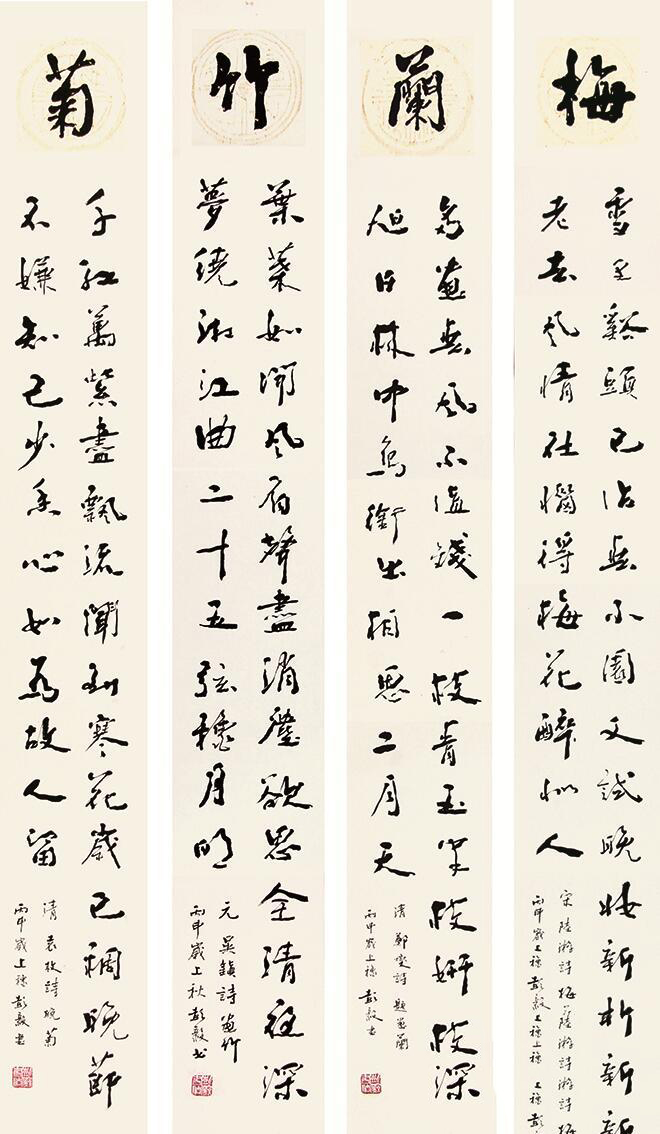 梅
雪里谿頭已占春小園又試晚妝新折新新新
老去風情在惱得梅花醉似人
宋陸游詩梅陸游詩游詩梅
丙申歲上秋彭毅
蘭
多畫春風不值錢一枝青玉半枝妍枝深
旭日林中鳥銜出相思二月天
清鄭燮詩題畫蘭
丙申歲上秋彭毅書
竹
葉葉如聞風有聲盡消塵俗思全清夜深
夢繞湘江曲二十五弦穐月明
元吳鎮詩畫竹
丙申歲上秋彭毅書
菊
千紅萬紫盡飄流開到寒花歲已稠晚節
不嫌知己少香心如為故人留
清袁枚詩晚菊
丙申歲上秋彭毅書